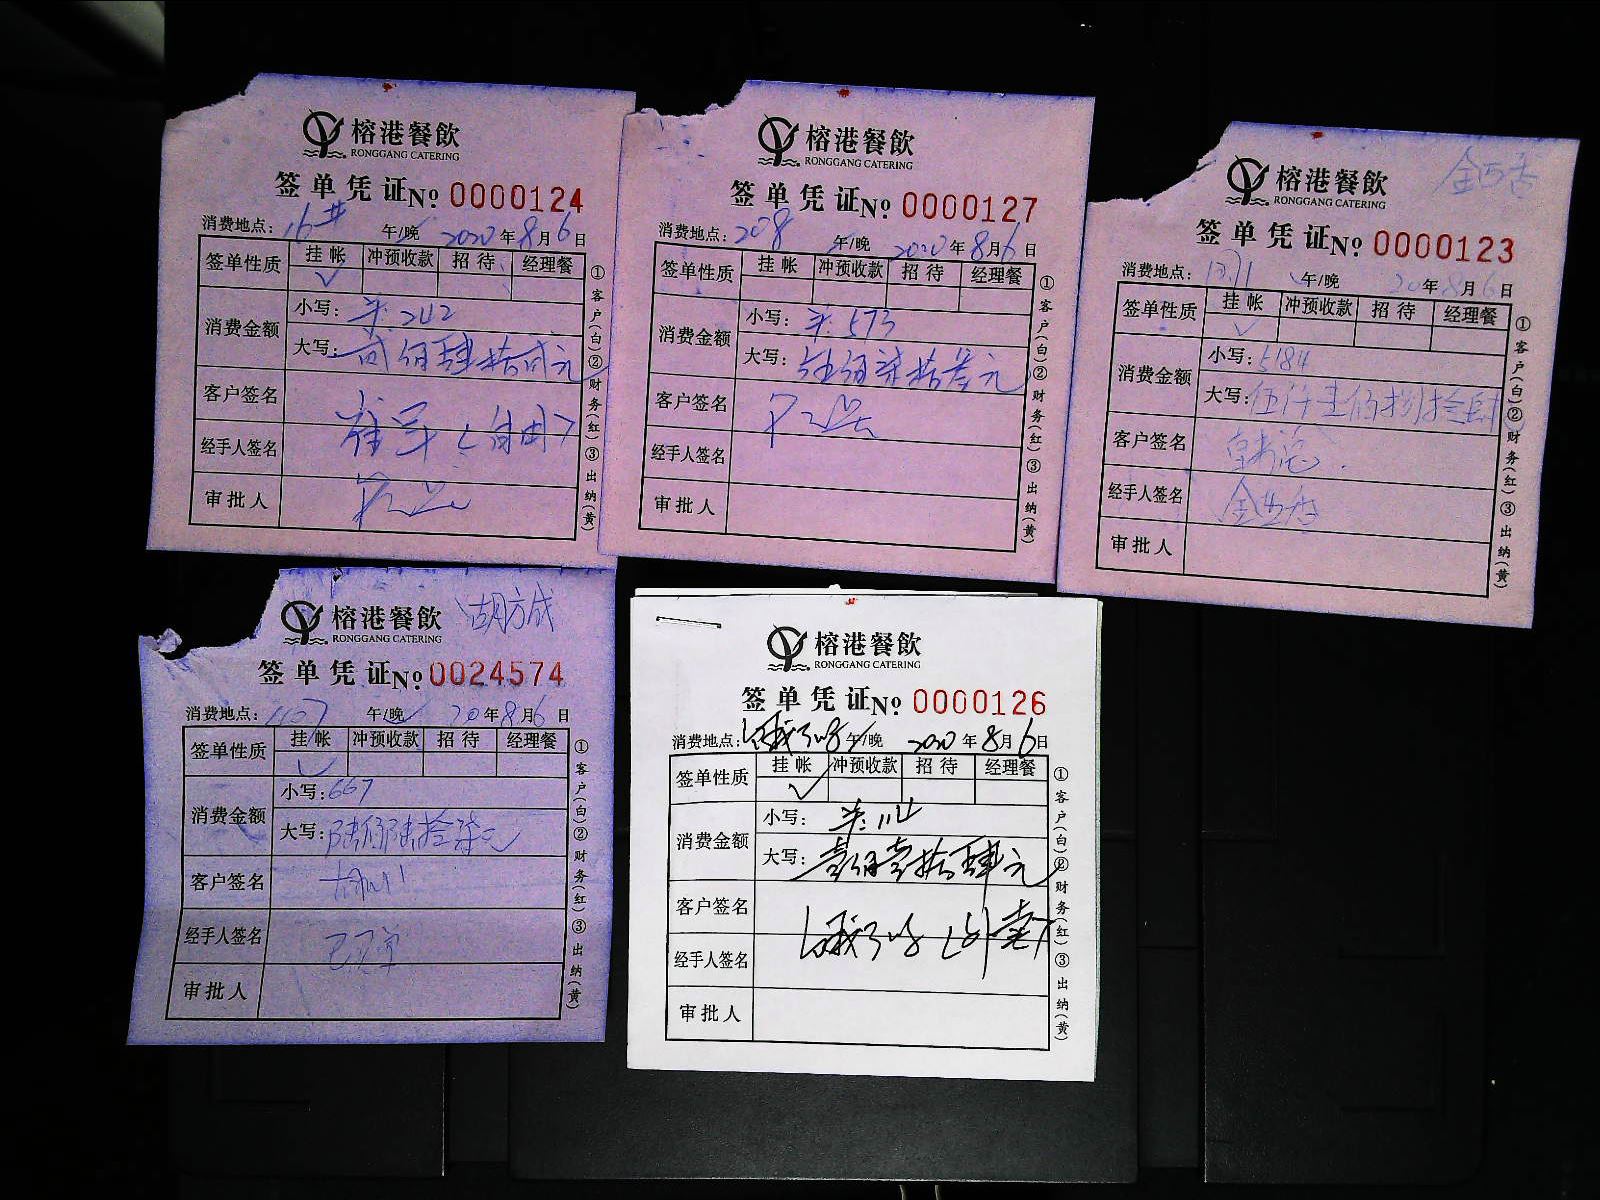 榕港餐飲
RONGGANG CATERING
签单凭证 No 0000124
消费地点: 16# 午/晚 2020年8月6日
签单性质 挂帐 冲预收款 招待 经理餐
✓
消费金额 小写: 242
大写: 贰佰肆拾贰元
客户签名
经手人签名
审批人
①客户(白)②财务(红)③出纳(黄)
榕港餐飲
RONGGANG CATERING
签单凭证 No 0000127
消费地点: 208 午/晚 2020年8月6日
签单性质 挂帐 冲预收款 招待 经理餐
消费金额 小写: 573
大写: 伍佰柒拾叁元
客户签名
经手人签名
审批人
①客户(白)②财务(红)③出纳(黄)
榕港餐飲
RONGGANG CATERING
签单凭证 No 0000123
消费地点: 午/晚 20年8月6日
签单性质 挂帐 冲预收款 招待 经理餐
✓
消费金额 小写: 5184
大写: 伍仟壹佰捌拾肆
客户签名
经手人签名
审批人
①客户(白)②财务(红)③出纳(黄)
榕港餐飲 胡方成
RONGGANG CATERING
签单凭证 No 0024574
消费地点: 1107 午/晚 20年8月6日
签单性质 挂帐 冲预收款 招待 经理餐
✓
消费金额 小写: 667
大写: 陆佰陆拾柒元
客户签名
经手人签名
审批人
①客户(白)②财务(红)③出纳(黄)
榕港餐飲
RONGGANG CATERING
签单凭证 No 0000126
消费地点: 饿了吗 午/晚 2020年8月6日
签单性质 挂帐 冲预收款 招待 经理餐
✓
消费金额 小写: 114
大写: 壹佰壹拾肆元
客户签名 饿了吗(外卖)
经手人签名
审批人
①客户(白)②财务(红)③出纳(黄)